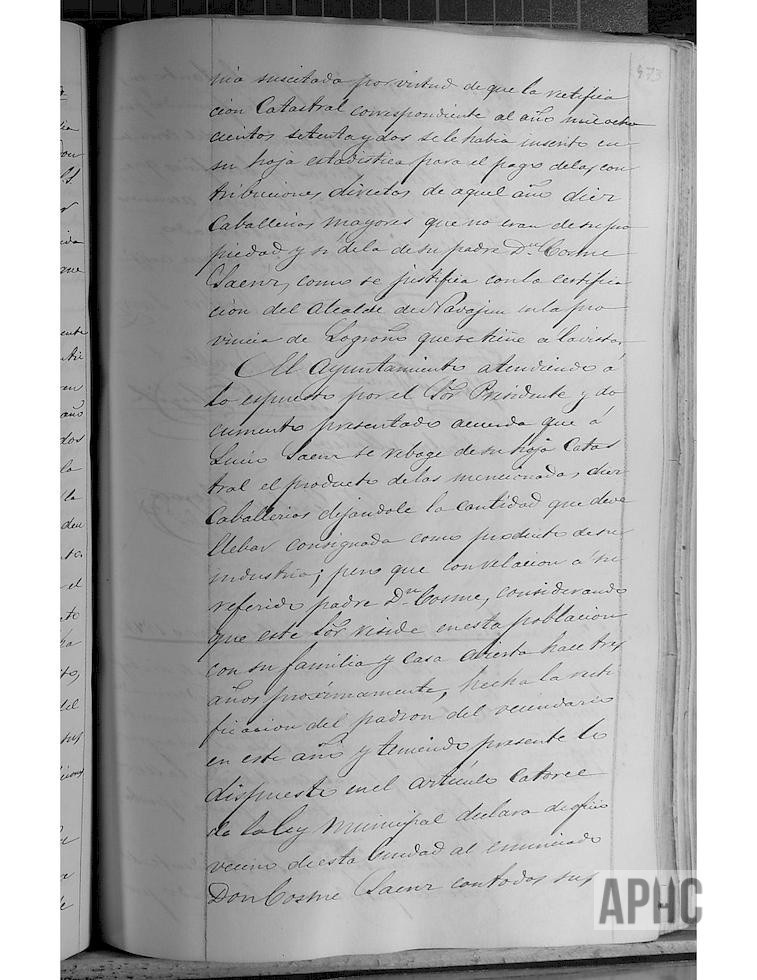 973
nia suscitada por virtud de que la rectifica
cion Catastral correspondiente al año mil ocho
cientos setenta y dos se le habia inserto en
su hoja estadistica para el pago de las con
tribuciones directas de aquel año diez
Caballerias mayores que no eran de su pro
piedad y si de la de su padre Dn. Cosme
Saenz, como se justifica con la certifica
cion del Alcalde de Navajun en la pro
vincia de Logroño que se tiene a la vista.
El Ayuntamiento atendiendo á
lo espuesto por el Sor. Presidente y do
cumento presentado acuerda que á
Lucio Saenz se rebage de su hoja Catas
tral el producto de las mencionadas diez
Caballerias dejandole la cantidad que deve
llebar consignada como producto de su
industria; pero que con relacion a su
referido padre Dn. Cosme, considerando
que este Sor. reside en esta poblacion
con su familia y casa abierta hace tres
años proximamente, hecha la recti
ficacion del padron del vecindario
en este año y teniendo presente lo
dispuesto en el articulo Catorce
de la Ley Municipal declara de oficio
vecino de esta Ciudad al enunciado
Don Cosme Saenz con todos sus
APHC